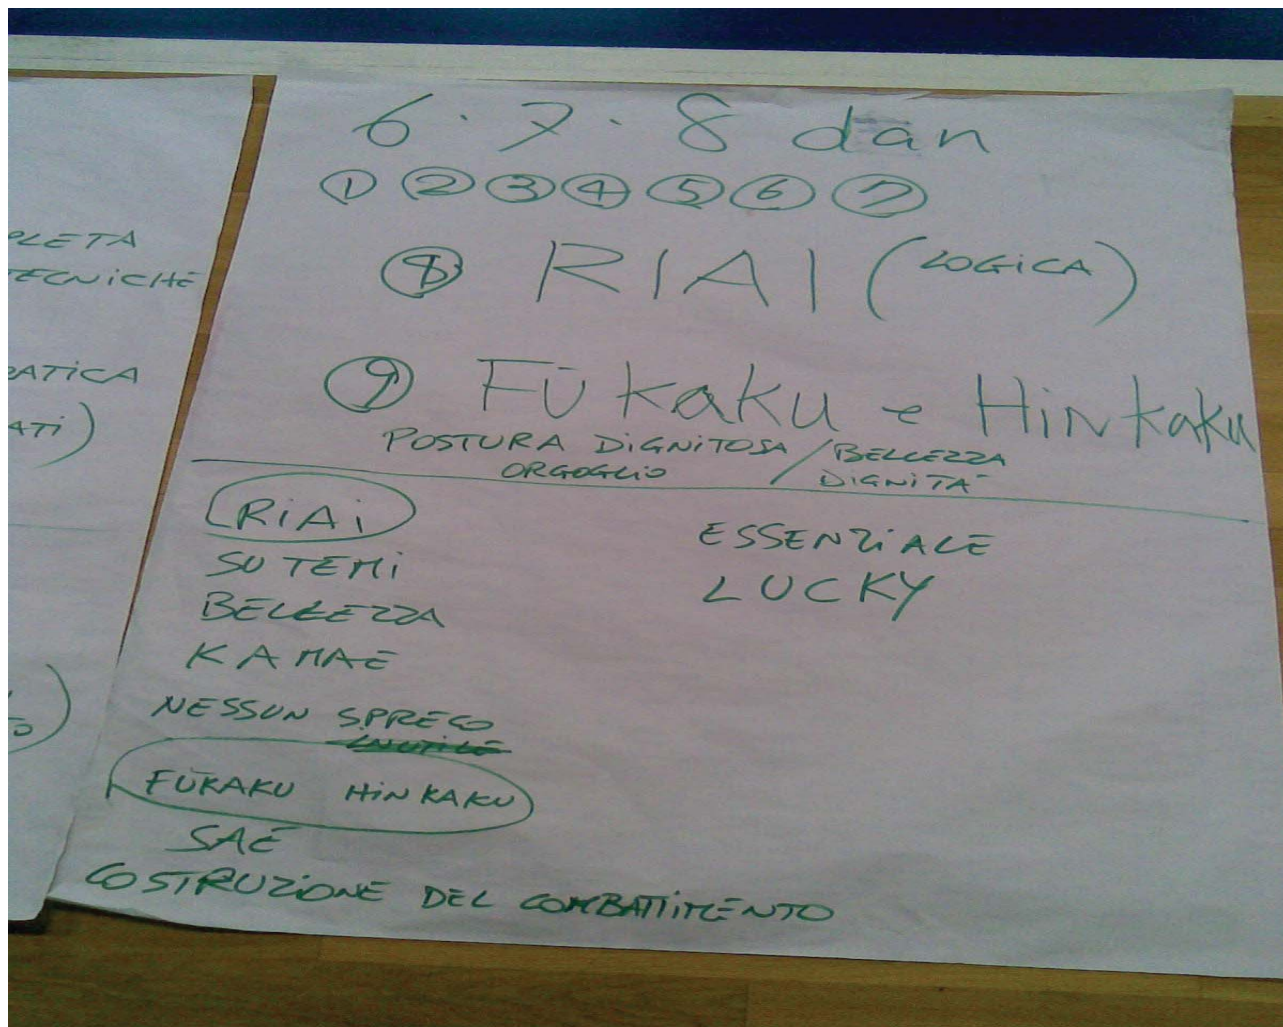 PLETA
TECNICHE
RATICA
ATI)
6·7·8 dan
① ② ③ ④ ⑤ ⑥ ⑦
⑧ RIAI (LOGICA)
⑨ Fūkaku e Hinkaku
POSTURA DIGNITOSA / BELLEZZA
ORGOGLIO DIGNITÀ
RIAI
SUTEMI
BELLEZZA
KAMAE
NESSUN SPRECO
INUTILE
FŪKAKU HINKAKU
SAE
COSTRUZIONE DEL COMBATTIMENTO
ESSENZIALE
LUCKY